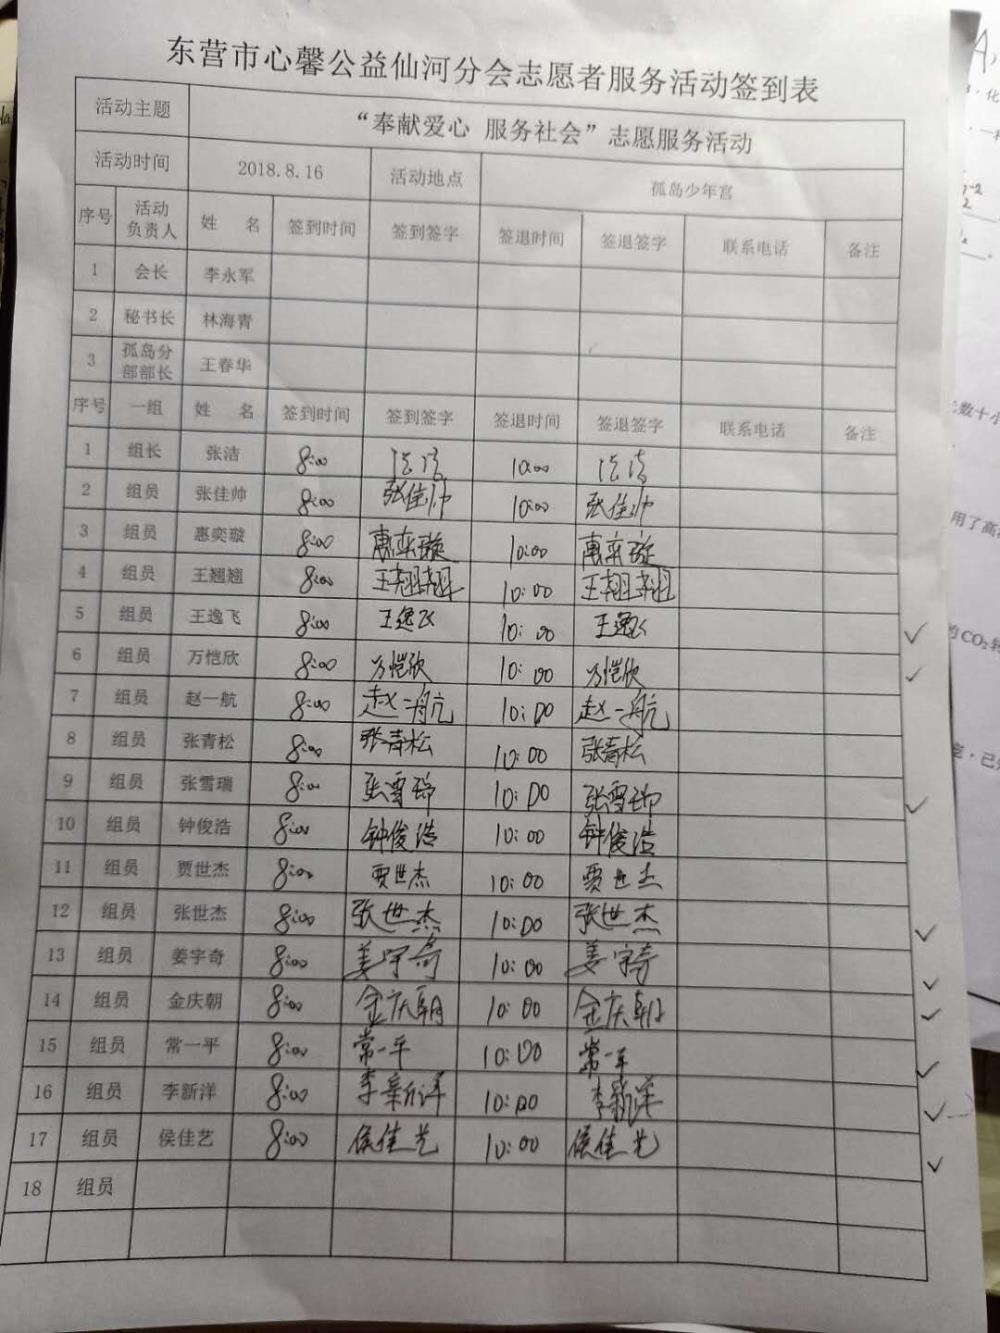 东营市心馨公益仙河分会志愿者服务活动签到表
活动主题 “奉献爱心 服务社会”志愿服务活动
活动时间 2018.8.16 活动地点 孤岛少年宫
序号 活动负责人 姓 名 签到时间 签到签字 签退时间 签退签字 联系电话 备注
1 会长 李永军
2 秘书长 林海青
3 孤岛分部部长 王春华
序号 一组 姓 名 签到时间 签到签字 签退时间 签退签字 联系电话 备注
1 组长 张洁 8:00 10:00
2 组员 张佳帅 8:00 张佳帅 10:00 张佳帅
3 组员 惠奕璇 8:00 惠奕璇 10:00 惠奕璇
4 组员 王翘翘 8:00 王翘翘 10:00 王翘翘
5 组员 王逸飞 8:00 王逸飞 10:00 王逸飞
6 组员 万恺欣 8:00 万恺欣 10:00 万恺欣
7 组员 赵一航 8:00 赵一航 10:00 赵一航
8 组员 张青松 8:00 张青松 10:00 张青松
9 组员 张雪瑞 8:00 张雪瑞 10:00 张雪瑞
10 组员 钟俊浩 8:00 钟俊浩 10:00 钟俊浩
11 组员 贾世杰 8:00 贾世杰 10:00 贾世杰
12 组员 张世杰 8:00 张世杰 10:00 张世杰
13 组员 姜宇奇 8:00 姜宇奇 10:00 姜宇奇
14 组员 金庆朝 8:00 金庆朝 10:00 金庆朝
15 组员 常一平 8:00 常一平 10:00 常一平
16 组员 李新洋 8:00 李新洋 10:00 李新洋
17 组员 侯佳艺 8:00 侯佳艺 10:00 侯佳艺
18 组员
数十小
用了高
CO₂转